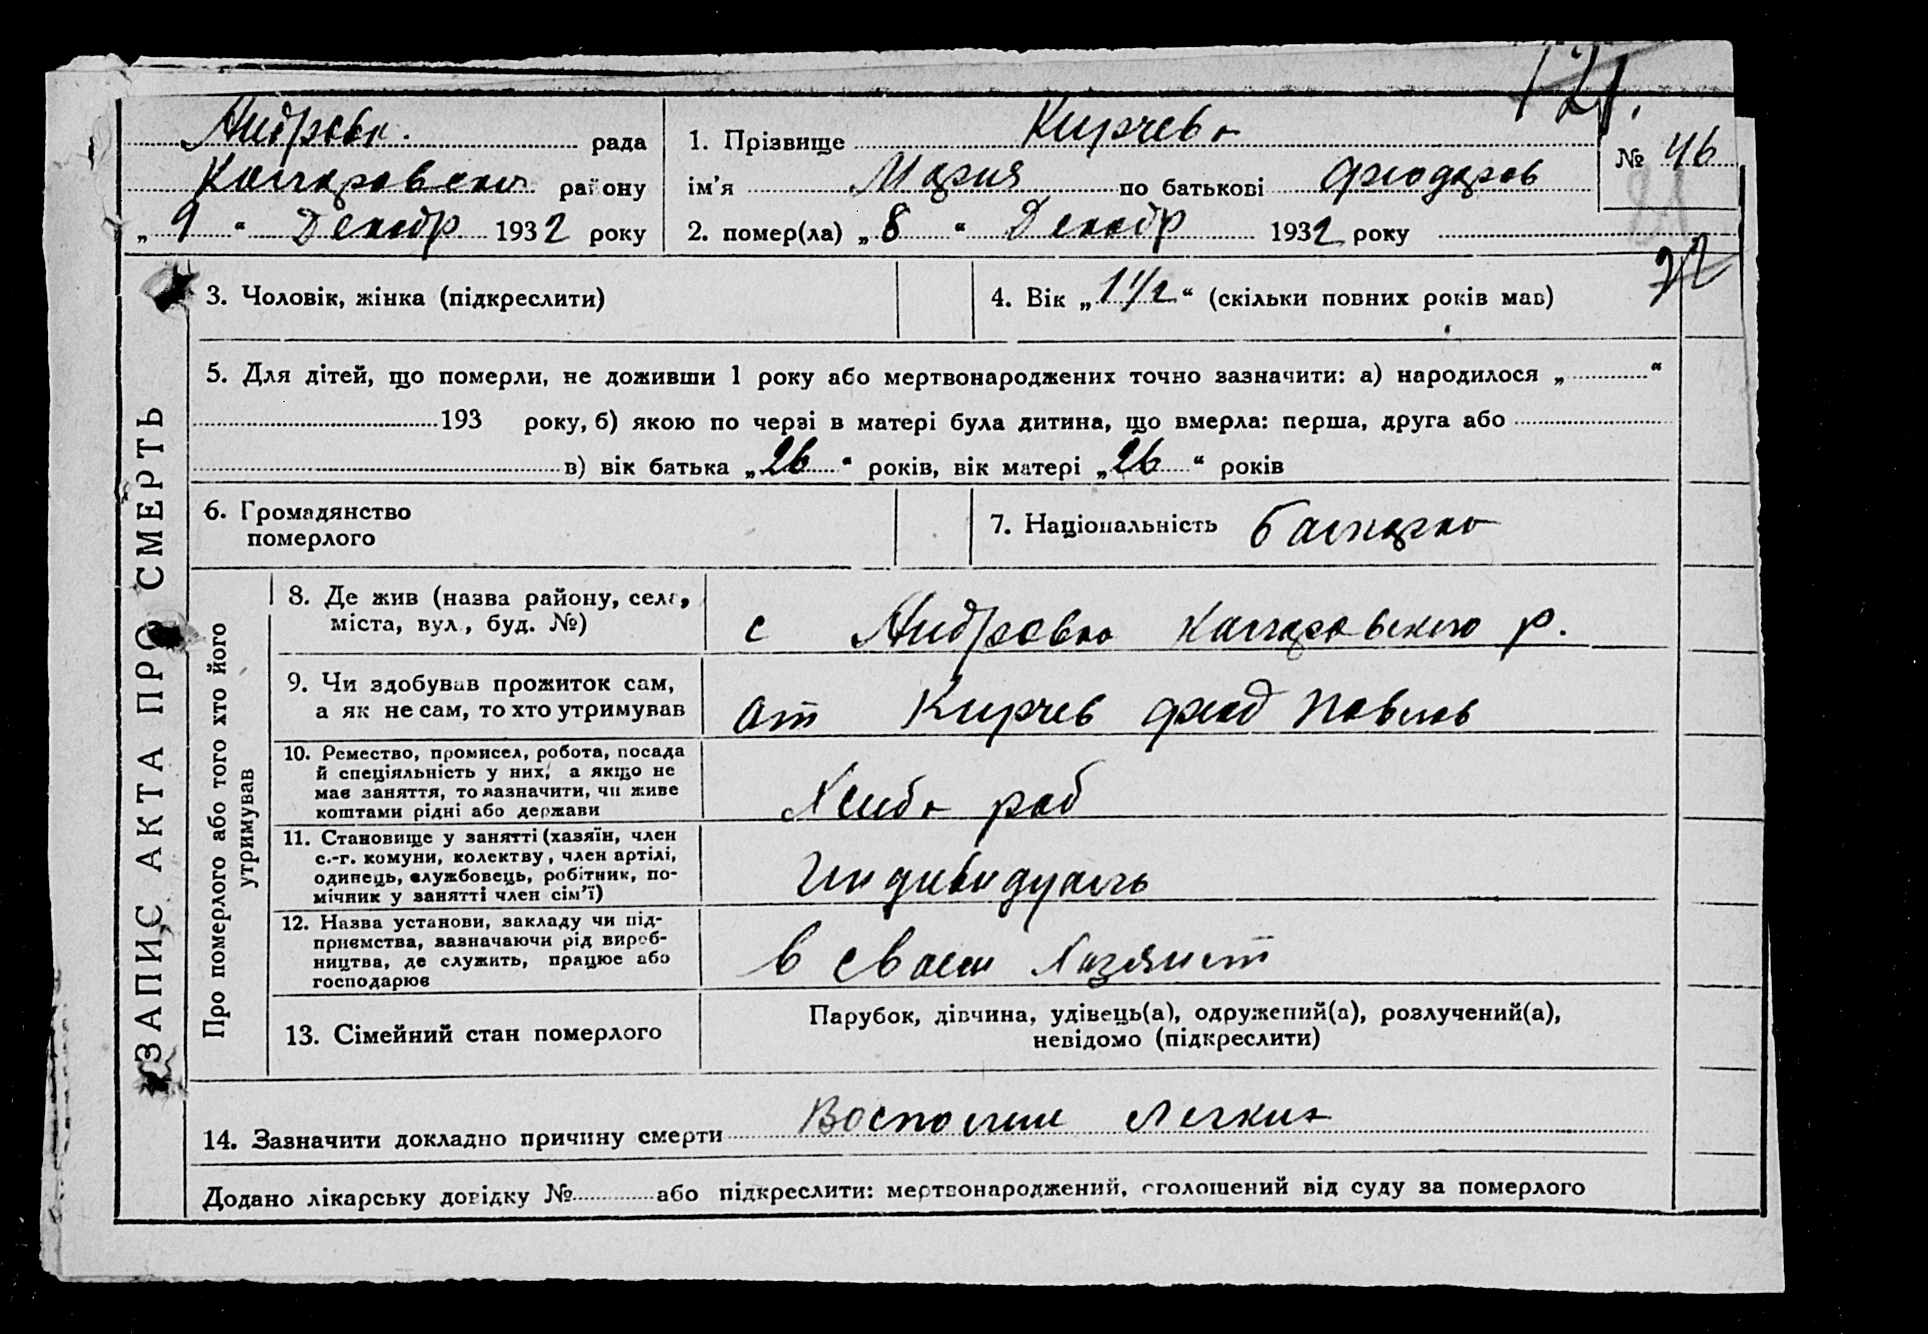 121.
Андровк. рада
Коларовского району
„ 9 “ Декабр 1932 року
1. Прізвище Кирчева
ім’я Мария по батькові Фиодаров
2. помер(ла) „ 8 “ Декабр 1932 року
№ 46
21
ЗАПИС АКТА ПРО СМЕРТЬ
3. Чоловік, жінка (підкреслити)
4. Вік „ 1 1/2 “ (скільки повних років мав)
5. Для дітей, що померли, не доживши 1 року або мертвонароджених точно зазначити: а) народилося „ “
193 року, б) якою по черзі в матері була дитина, що вмерла: перша, друга або
в) вік батька „ 26 “ років, вік матері „ 26 “ років
6. Громадянство
померлого
7. Національність Балгарка
Про померлого або того хто його
утримував
8. Де жив (назва району, села,
міста, вул., буд. №)
с Андровка Каларовского р.
9. Чи здобував прожиток сам,
а як не сам, то хто утримував
от Кирчев Фиод Павлов
10. Ремество, промисел, робота, посада
й спеціяльність у них, а якщо не
має заняття, то зазначити, чи живе
коштами рідні або держави
Хлиба роб
11. Становище у занятті (хазяїн, член
с.-г. комуни, колектву, член артілі,
одинець, службовець, робітник, по-
мічник у занятті член сім’ї)
Индивидуаль
12. Назва установи, закладу чи під-
приємства, зазначаючи рід вироб-
ництва, де служить, працює або
господарює
в сваем Хазяист
13. Сімейний стан померлого
Парубок, дівчина, удівець(а), одружений(а), розлучений(а),
невідомо (підкреслити)
14. Зазначити докладно причину смерти Воспалии Легких
Додано лікарську довідку № або підкреслити: мертвонароджений, оголошений від суду за померлого